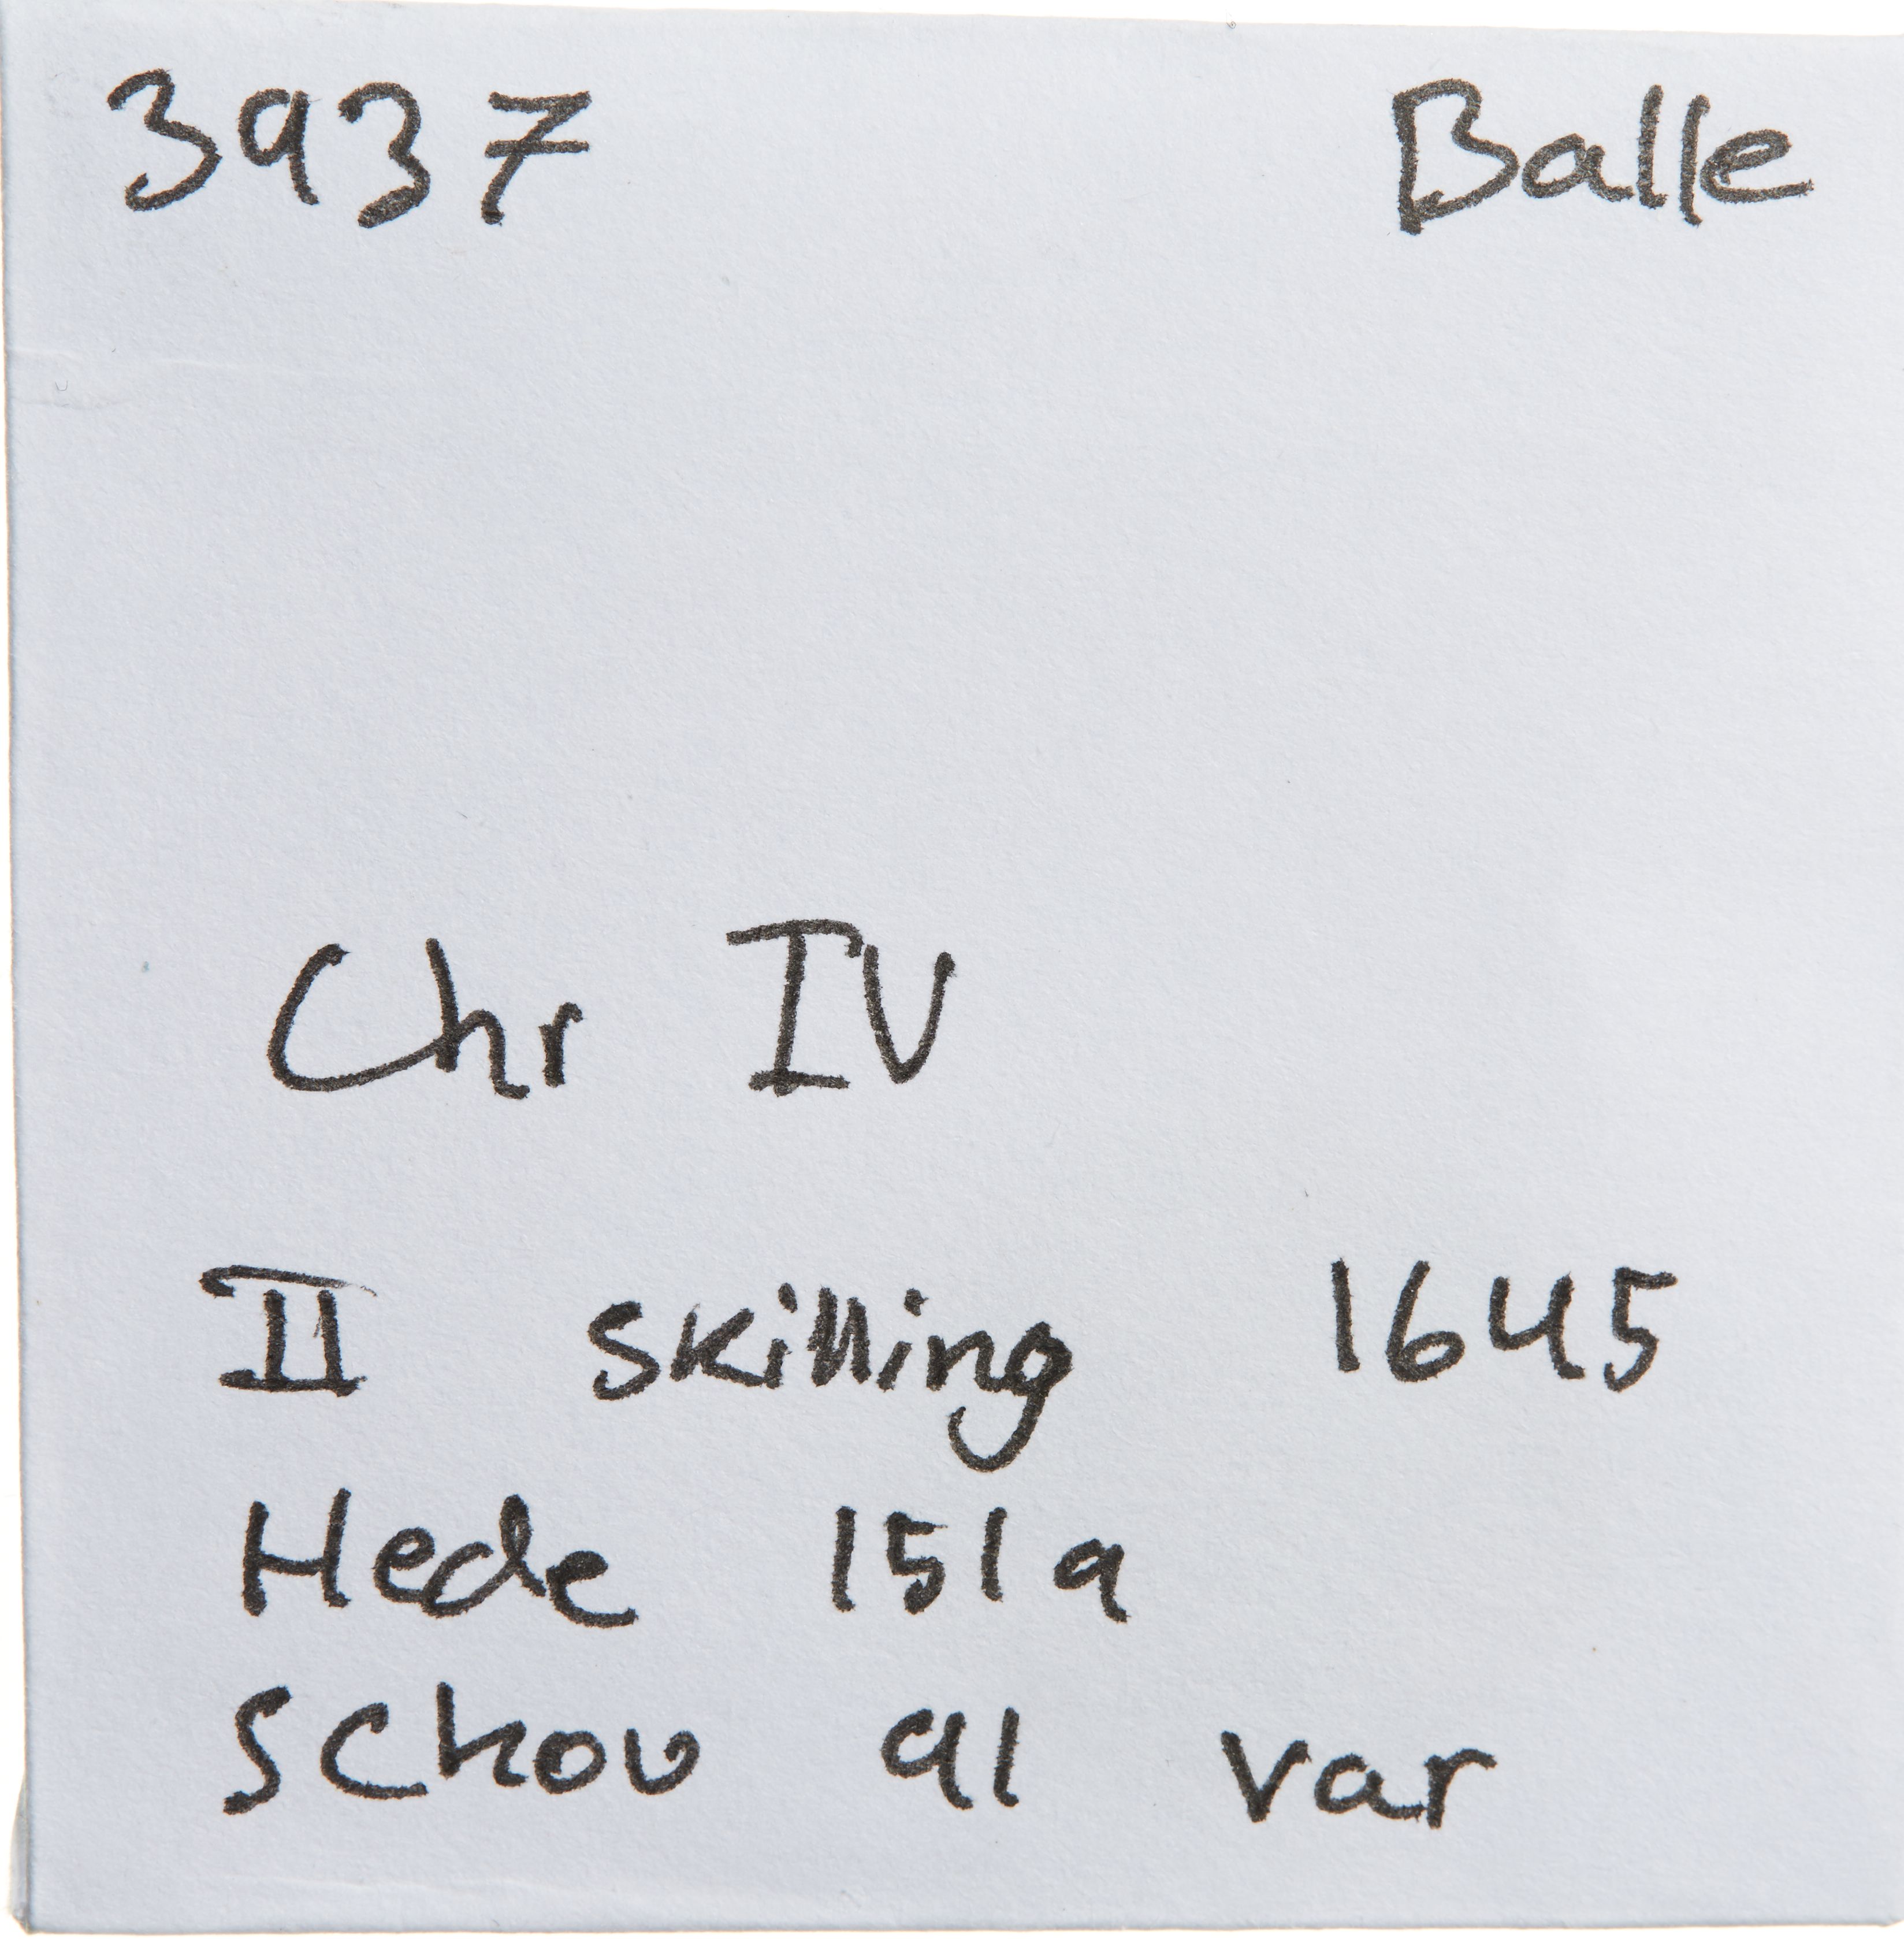 3937 Balle
Chr IV
II skilling 1645
Hede 151a
Schou 91 var